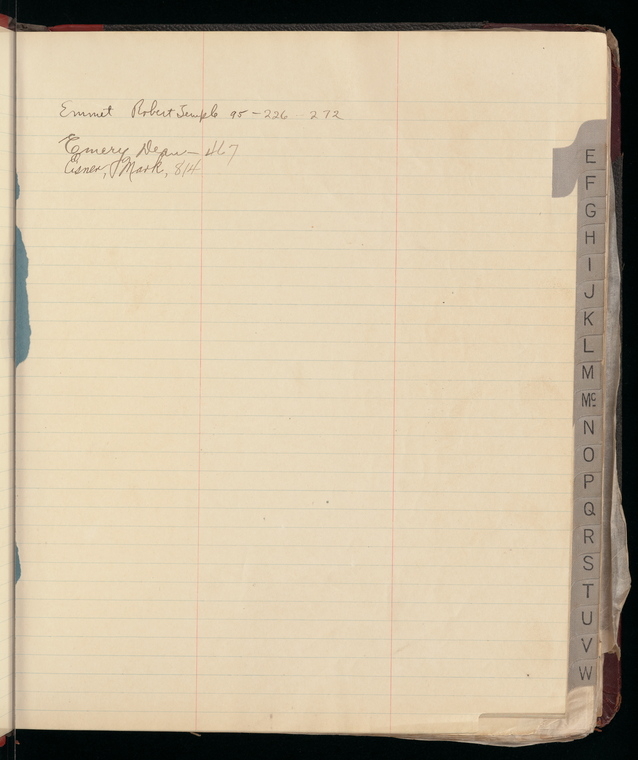 Emmet Robert Temple 95-226 272
Emery Dean 467
Eisner, Mark, 814
E
F
G
H
I
J
K
L
M
Mc
N
O
P
Q
R
S
T
U
V
W